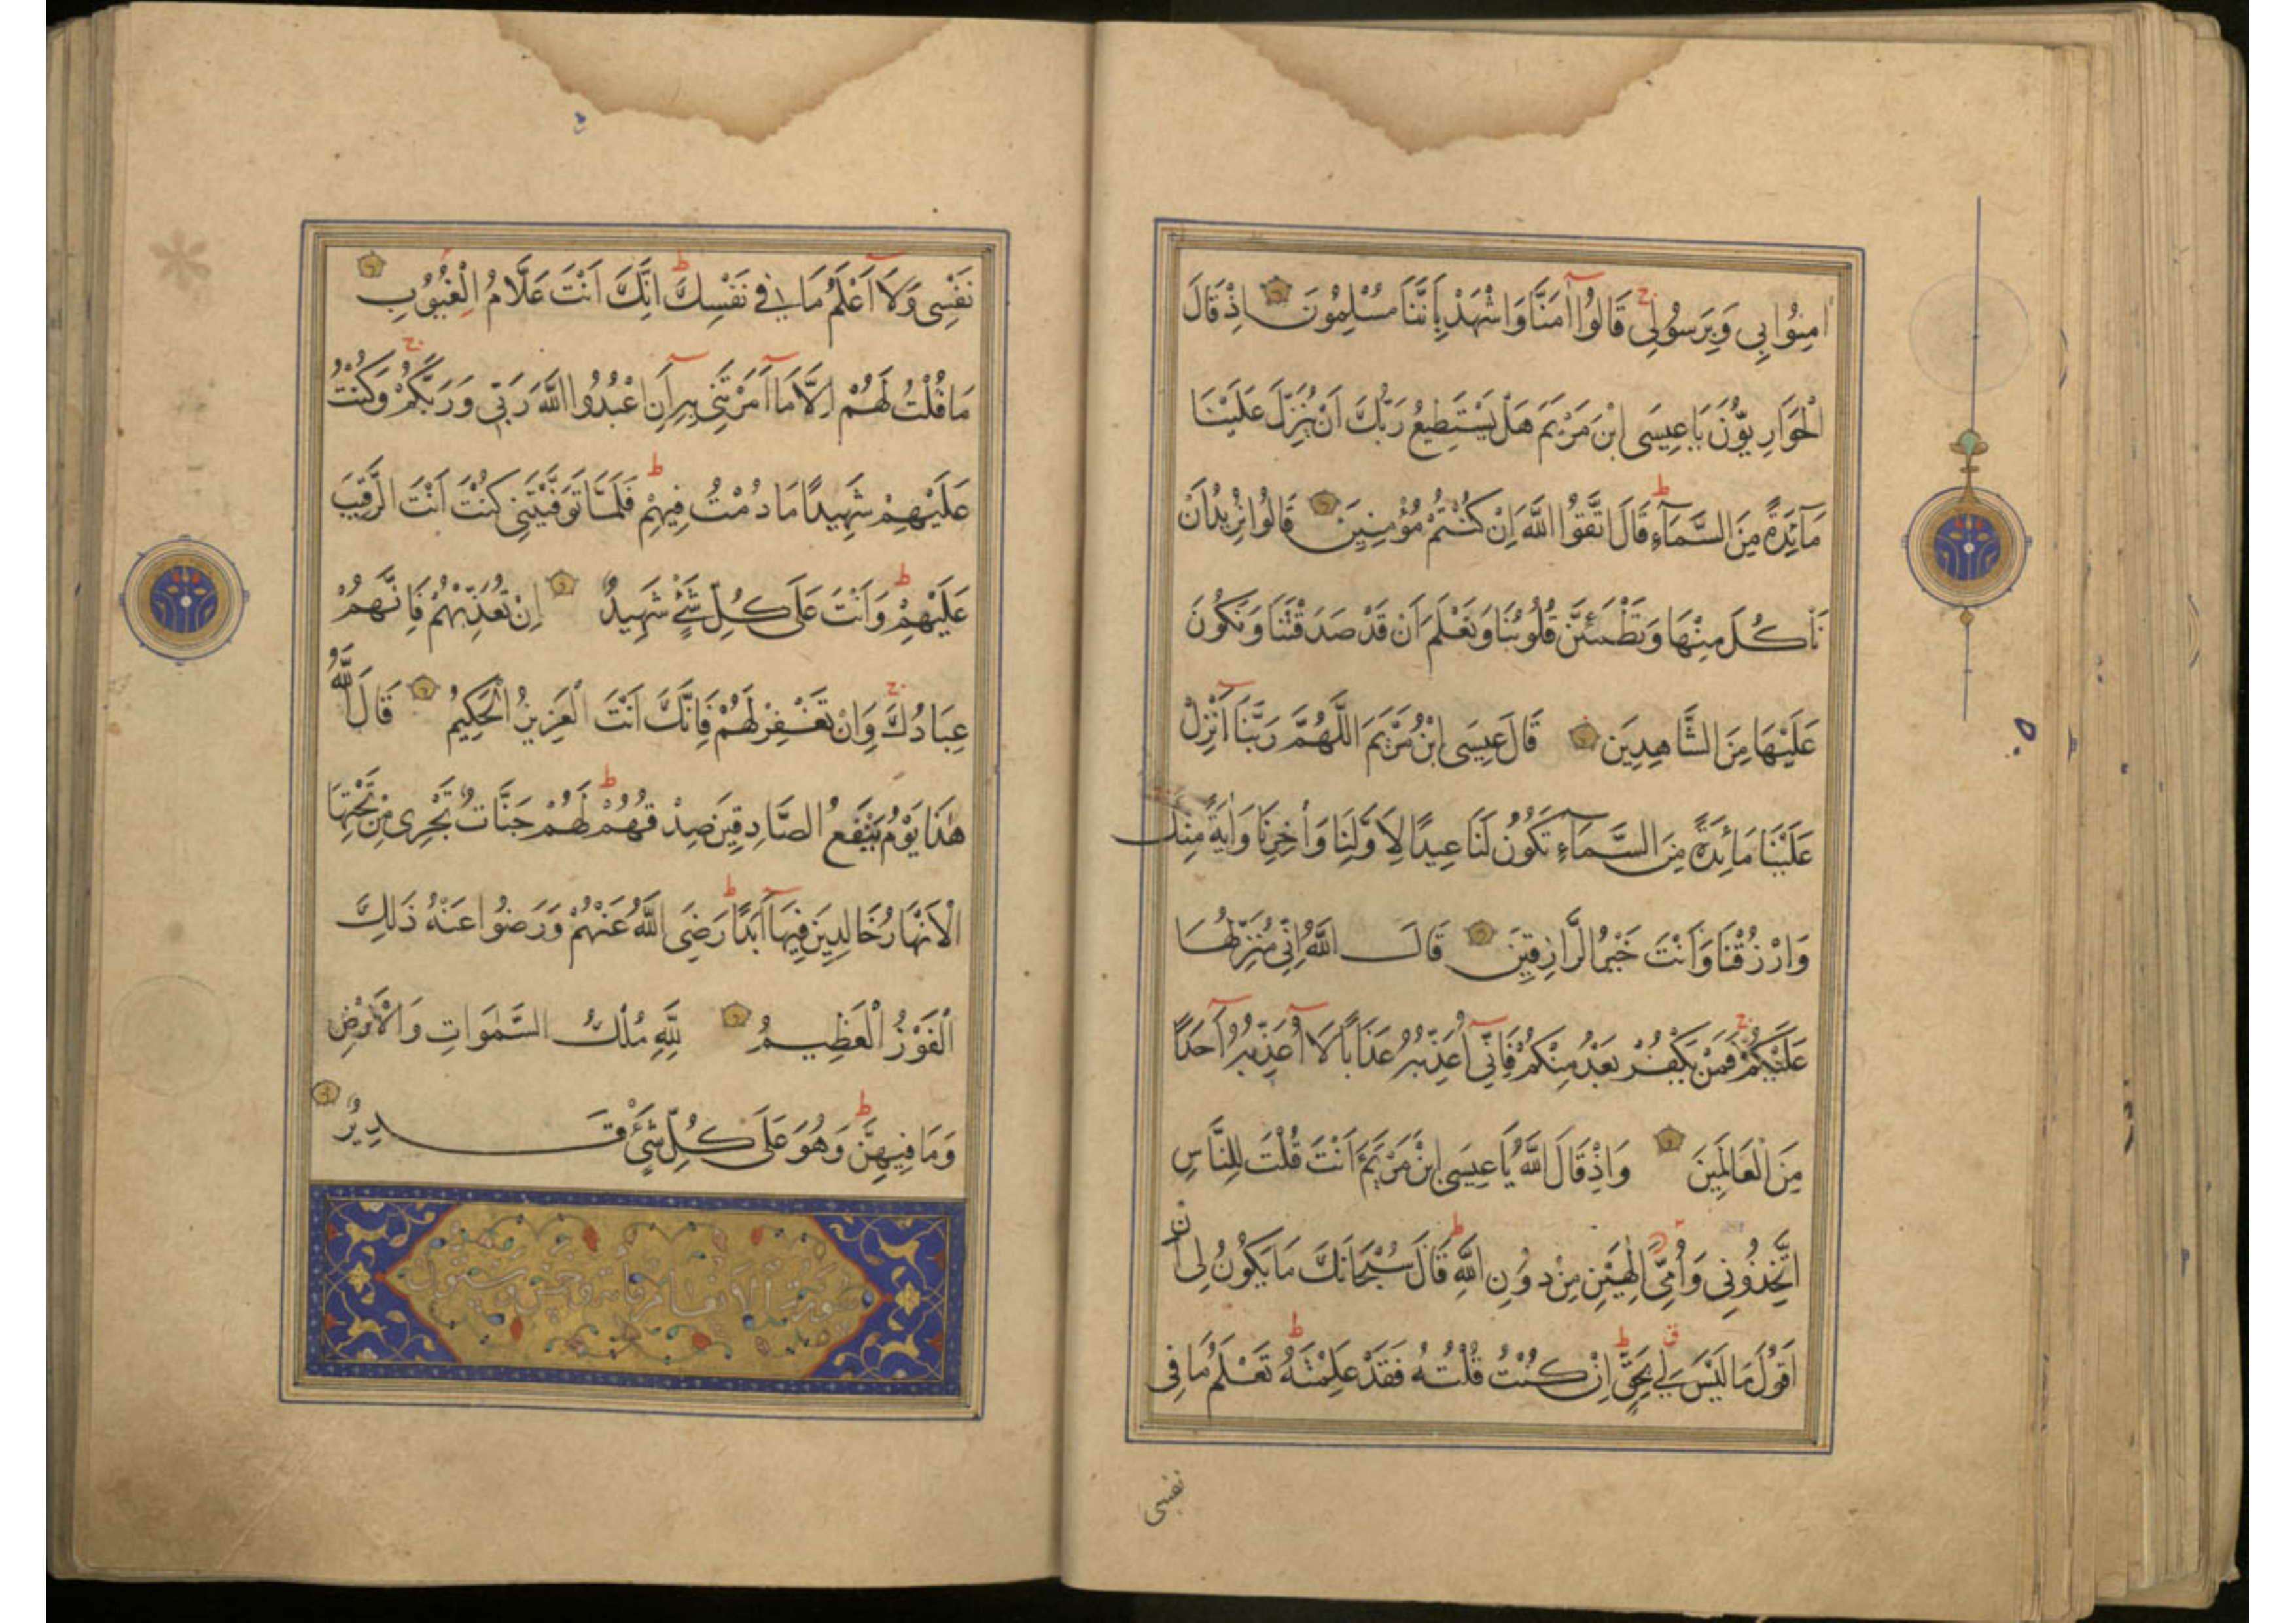 اٰمِنُوا بِي وَبِرَسُولِي قَالُوا آمَنَّا وَاشْهَدْ بِأَنَّنَا مُسْلِمُونَ اِذْ قَالَ
الْحَوَارِيُّونَ يَا عِيسَى ابْنَ مَرْيَمَ هَلْ يَسْتَطِيعُ رَبُّكَ اَنْ يُنَزِّلَ عَلَيْنَا
مَآئِدَةً مِنَ السَّمَآءِ قَالَ اتَّقُوا اللَّهَ اِنْ كُنْتُمْ مُؤْمِنِينَ قَالُوا نُرِيدُ اَنْ
نَأْكُلَ مِنْهَا وَتَطْمَئِنَّ قُلُوبُنَا وَنَعْلَمَ اَنْ قَدْ صَدَقْتَنَا وَنَكُونَ
عَلَيْهَا مِنَ الشَّاهِدِينَ قَالَ عِيسَى ابْنُ مَرْيَمَ اللَّهُمَّ رَبَّنَا اَنْزِلْ
عَلَيْنَا مَائِدَةً مِنَ السَّمَآءِ تَكُونُ لَنَا عِيدًا لِاَوَّلِنَا وَاٰخِرِنَا وَاٰيَةً مِنْكَ
وَارْزُقْنَا وَاَنْتَ خَيْرُ الرَّازِقِينَ قَالَ اللَّهُ اِنِّي مُنَزِّلُهَا
عَلَيْكُمْ فَمَنْ يَكْفُرْ بَعْدُ مِنْكُمْ فَاِنِّي اُعَذِّبُهُ عَذَابًا لَا اُعَذِّبُهُ اَحَدًا
مِنَ الْعَالَمِينَ وَاِذْ قَالَ اللَّهُ يَا عِيسَى ابْنَ مَرْيَمَ ءَاَنْتَ قُلْتَ لِلنَّاسِ
اتَّخِذُونِي وَاُمِّيَ اِلٰهَيْنِ مِنْ دُونِ اللَّهِ قَالَ سُبْحَانَكَ مَا يَكُونُ لِي اَنْ
اَقُولَ مَا لَيْسَ لِي بِحَقٍّ اِنْ كُنْتُ قُلْتُهُ فَقَدْ عَلِمْتَهُ تَعْلَمُ مَا فِي
نفسي
نَفْسِي وَلَا اَعْلَمُ مَا فِي نَفْسِكَ اِنَّكَ اَنْتَ عَلَّامُ الْغُيُوبِ
مَا قُلْتُ لَهُمْ اِلَّا مَا اَمَرْتَنِي بِهِ اَنِ اعْبُدُوا اللَّهَ رَبِّي وَرَبَّكُمْ وَكُنْتُ
عَلَيْهِمْ شَهِيدًا مَا دُمْتُ فِيهِمْ فَلَمَّا تَوَفَّيْتَنِي كُنْتَ اَنْتَ الرَّقِيبَ
عَلَيْهِمْ وَاَنْتَ عَلَى كُلِّ شَيْءٍ شَهِيدٌ اِنْ تُعَذِّبْهُمْ فَاِنَّهُمْ
عِبَادُكَ وَاِنْ تَغْفِرْ لَهُمْ فَاِنَّكَ اَنْتَ الْعَزِيزُ الْحَكِيمُ قَالَ اللَّهُ
هٰذَا يَوْمُ يَنْفَعُ الصَّادِقِينَ صِدْقُهُمْ لَهُمْ جَنَّاتٌ تَجْرِي مِنْ تَحْتِهَا
الْاَنْهَارُ خَالِدِينَ فِيهَا اَبَدًا رَضِيَ اللَّهُ عَنْهُمْ وَرَضُوا عَنْهُ ذَلِكَ
الْفَوْزُ الْعَظِيمُ لِلَّهِ مُلْكُ السَّمٰوَاتِ وَالْاَرْضِ
وَمَا فِيهِنَّ وَهُوَ عَلَى كُلِّ شَيْءٍ قَدِيرٌ
سورة الانعام مائة وخمس وستون